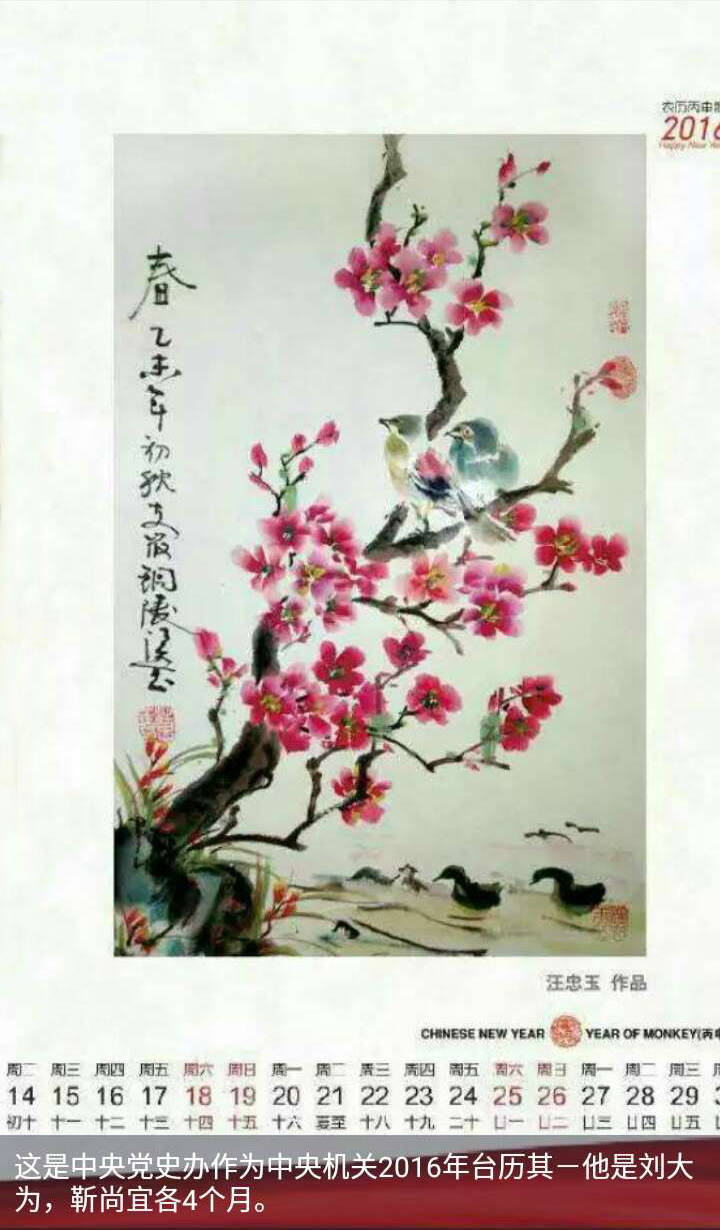 农历丙申
2016
Happy New Yea
春
乙未年初秋
铜陵
汪忠玉 作品
CHINESE NEW YEAR YEAR OF MONKEY(丙申
周二 周三 周四 周五 周六 周日 周一 周二 周三 周四 周五 周六 周日 周一 周二 周三 周
14 15 16 17 18 19 20 21 22 23 24 25 26 27 28 29 3
初十 十一 十二 十三 十四 十五 十六 夏至 十八 十九 二十 廿一 廿二 廿三 廿四 廿五
这是中央党史办作为中央机关2016年台历其－他是刘大
为，靳尚宜各4个月。